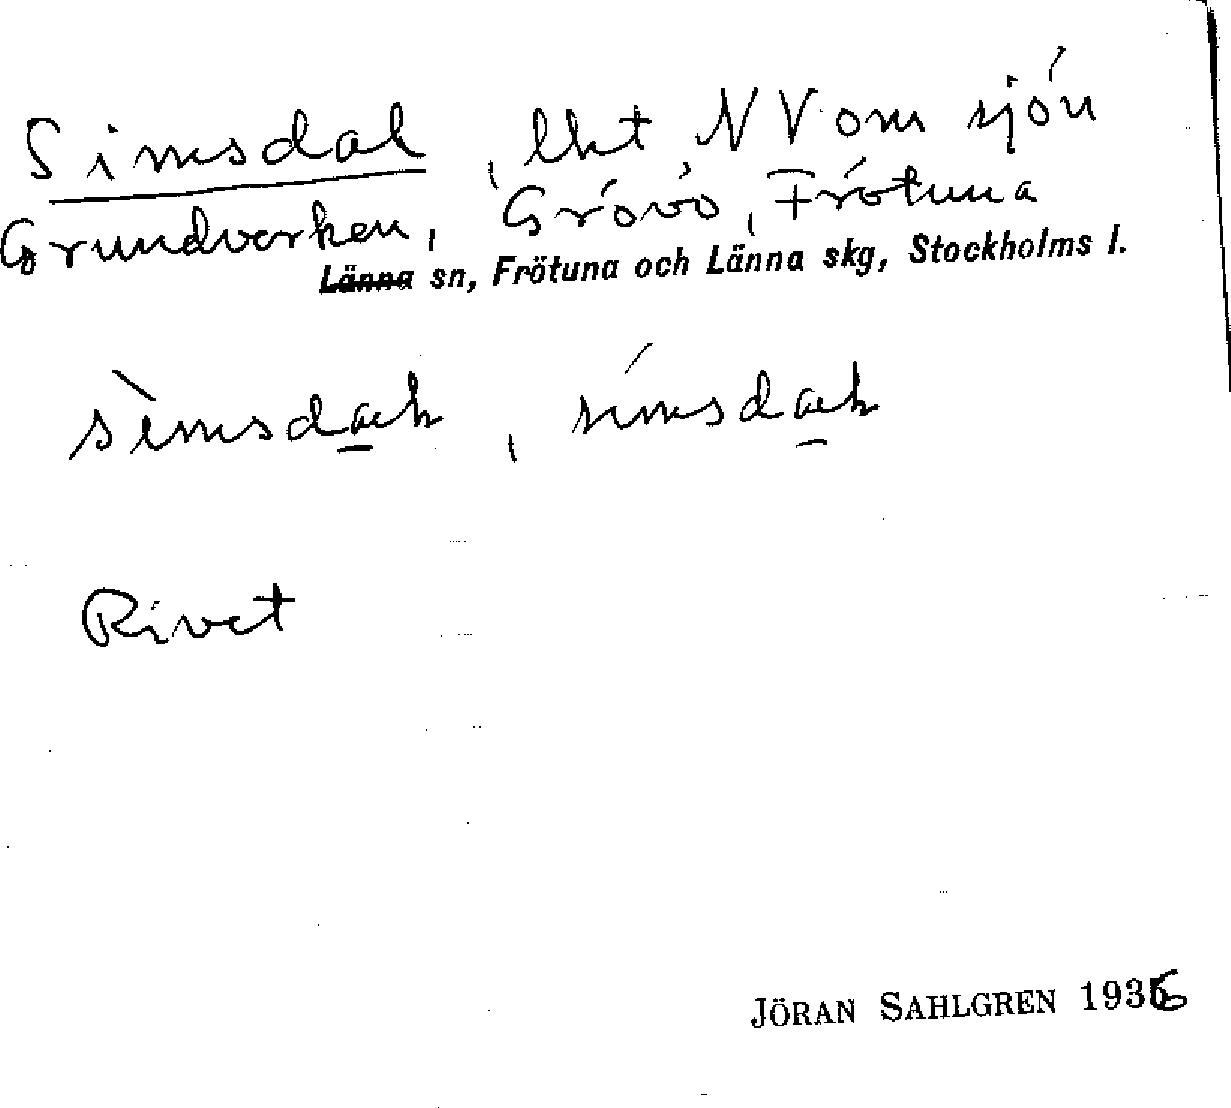 Simsdal, lht NV om sjön
Grundvarken, Grövö, Frötuna
Länna sn, Frötuna och Länna skg, Stockholms l.
Rivet
JÖRAN SAHLGREN 1936